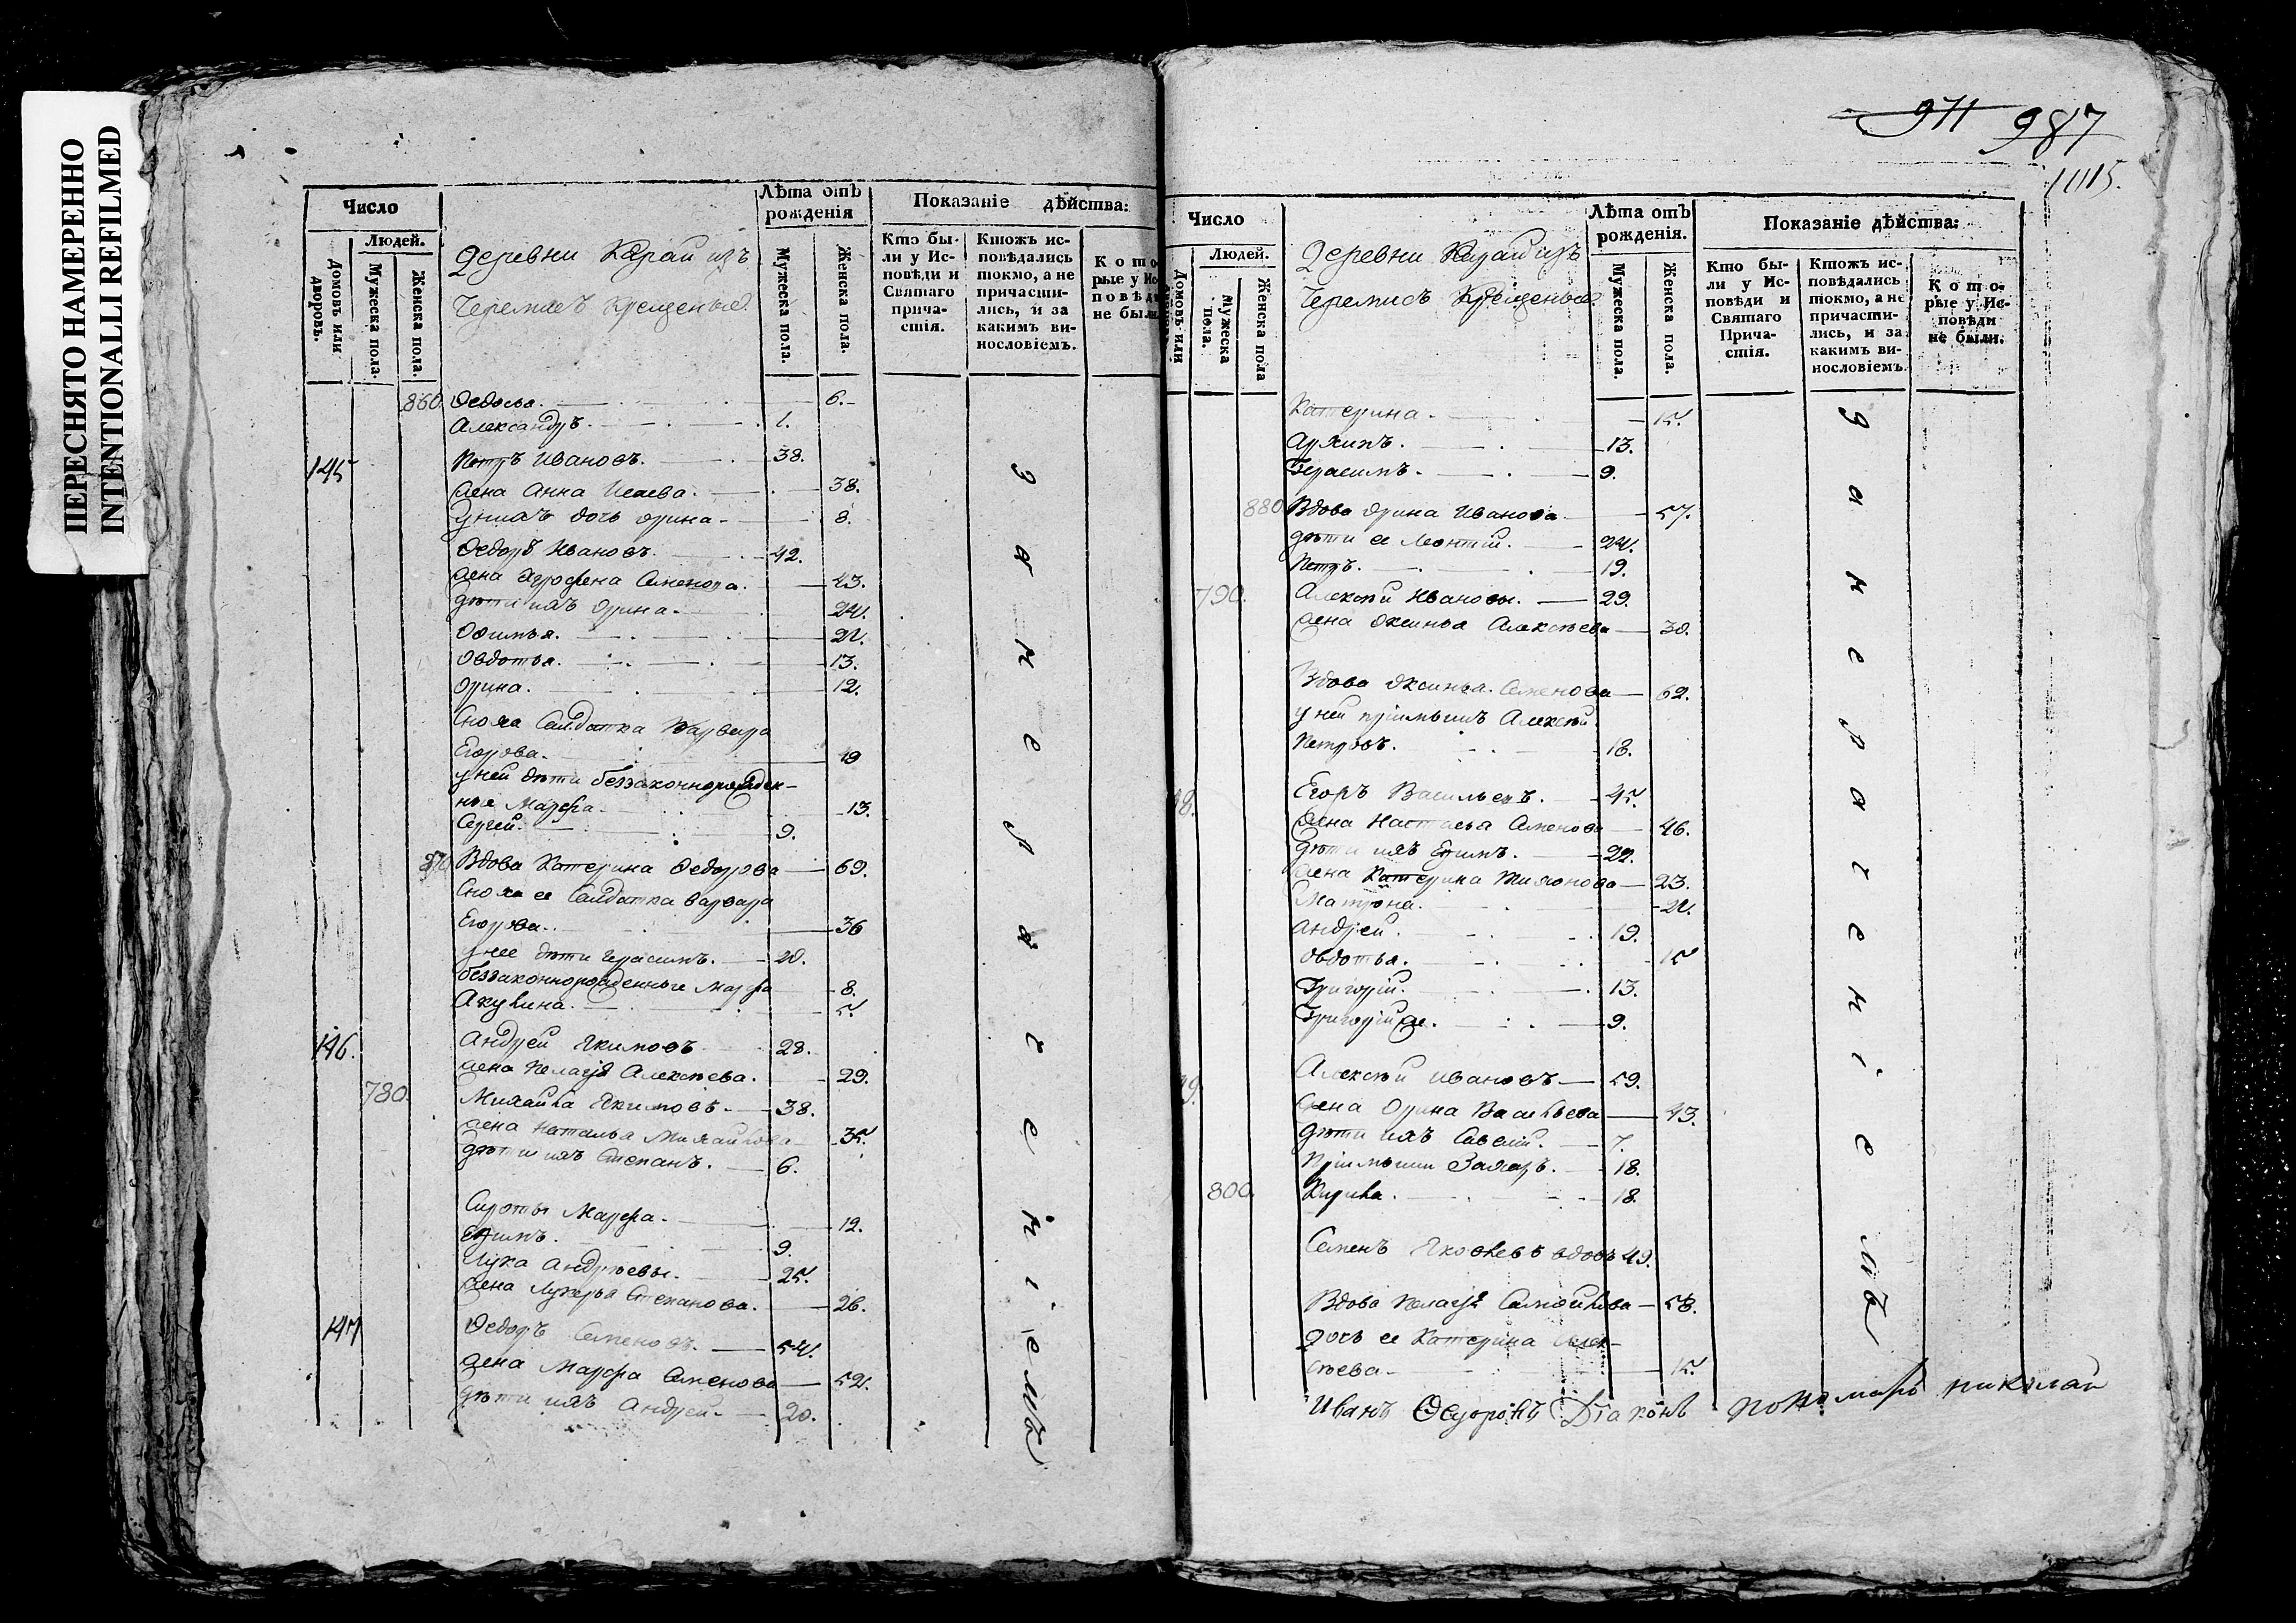 ПЕРЕСНЯТО НАМЕРЕННО
INTENTIONALLI REFILMED
Число
Людей.
Домовъ или дворовъ.
Мужеска пола.
Женска пола.
Деревни
Черемисъ крещеныхъ
Лѣта отъ рожденія
Мужеска пола.
Женска пола.
Показаніе дѣйства:
Кто бы-
ли у Ис-
повѣди и
Святаго
прича-
стія.
Ктожъ ис-
повѣдались
токмо, а не
причасти-
лись, и за
какимъ ви-
нословіемъ.
Кото
рые у Ис
повѣд
не были
860 Ѳедосья. 6.
Александръ. 1.
145 Петръ Ивановъ. 38.
жена Анна Исаева. 38.
у нихъ дочь Орина 8.
Ѳедоръ Ивановъ. 42.
жена Агрофена Семенова. 43.
дѣти ихъ Орина 24.
Офимья. 21.
Овдотья. 13.
Орина. 12.
Сноха Салдатка Варвара
Егорова. 19
у ней дѣти беззаконнорожден-
ные Марфа 13.
Сергей. 9.
870 Вдова Катерина Ѳедорова 69.
Сноха ее Салдатка Варвара
Егорова. 36
у нее дѣти Герасимъ. 20.
беззаконнорожденные Марфа 8.
Акулина. 5.
146. Андрей Якимовъ 28.
жена Пелагѣя Алексѣева. 29.
780. Михайла Якимовъ. 38.
жена Наталья Михайлова 35.
дѣти ихъ Степанъ. 6.
Сироты Марфа. 12.
Ефимъ. 9.
Лука Андрѣевы. 25.
жена Лукерья Степанова. 26.
147 Ѳедоръ Семеновъ. 54.
жена Марфа Семенова 52.
дѣти ихъ Андрей. 20.
за малеречениемъ
911 987
1015.
Число
Людей.
Домовъ или
Мужеска пола.
Женска пола
Деревни
Черемисъ Крещеныхъ
Лѣта отъ рожденія.
Мужеска пола.
Женска пола.
Показаніе дѣйства:
Кто бы-
ли у Ис-
повѣди и
Святаго
Прича-
стія.
Ктожъ ис-
повѣдались
токмо, а не
причасти-
лись, и за
какимъ ви-
нословіемъ.
Кото-
рые у Ис-
повѣди
не были.
Катерина. 15.
Архипъ. 13.
Герасимъ. 9.
880 Вдова Орина Иванова 57.
дѣти ее Леонтій. 24.
Петръ. 19.
790. Алексѣй Ивановы. 29.
жена Оксинья Алексѣева 30.
Вдова Оксинья Семенова 62.
у ней пріимышъ Алексѣй
Петровъ. 18.
Егоръ Васильевъ. 45.
жена Настасья Семенова 46.
дѣти ихъ Ефимъ. 22.
жена Катерина Тихонова 23.
Матрона. 21.
Андрей. 19.
Овдотья. 15
Григорій. 13.
Григорій же. 9.
Алексѣй Ивановъ 59.
жена Орина Васильева 43.
дѣти ихъ Савелій. 7.
Пріимыши Захаръ. 18.
800. Кирила. 18.
Семенъ Яковлевъ вдовъ 49.
Вдова Пелагѣя Самойлова 58.
дочь ее Катерина Алек-
сѣева 15.
Иванъ Ѳедоровъ Діаконъ пономарь николай